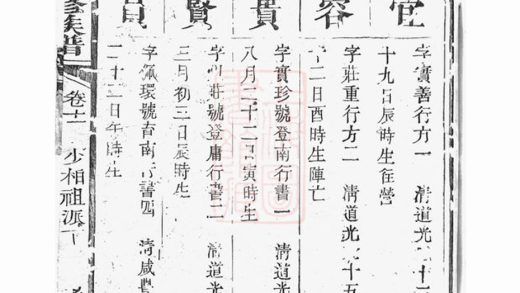 官
字實善行方一 清道光十二
十九日辰時生在營
容
字莊重行方二 清道光十五
十二日酉時生陣亡
實
字實珍號登南行書一 清道光
八月二十二日寅時生
賢
號登庸行書二 清道光
三月初三日辰時生
字佩環號春南行書四 清咸豐
二十二日午時生
族譜 卷十二 少相祖派下